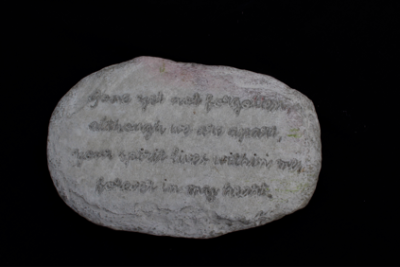 Gone yet not forgotten,
although we are apart,
your spirit lives within me,
forever in my heart.